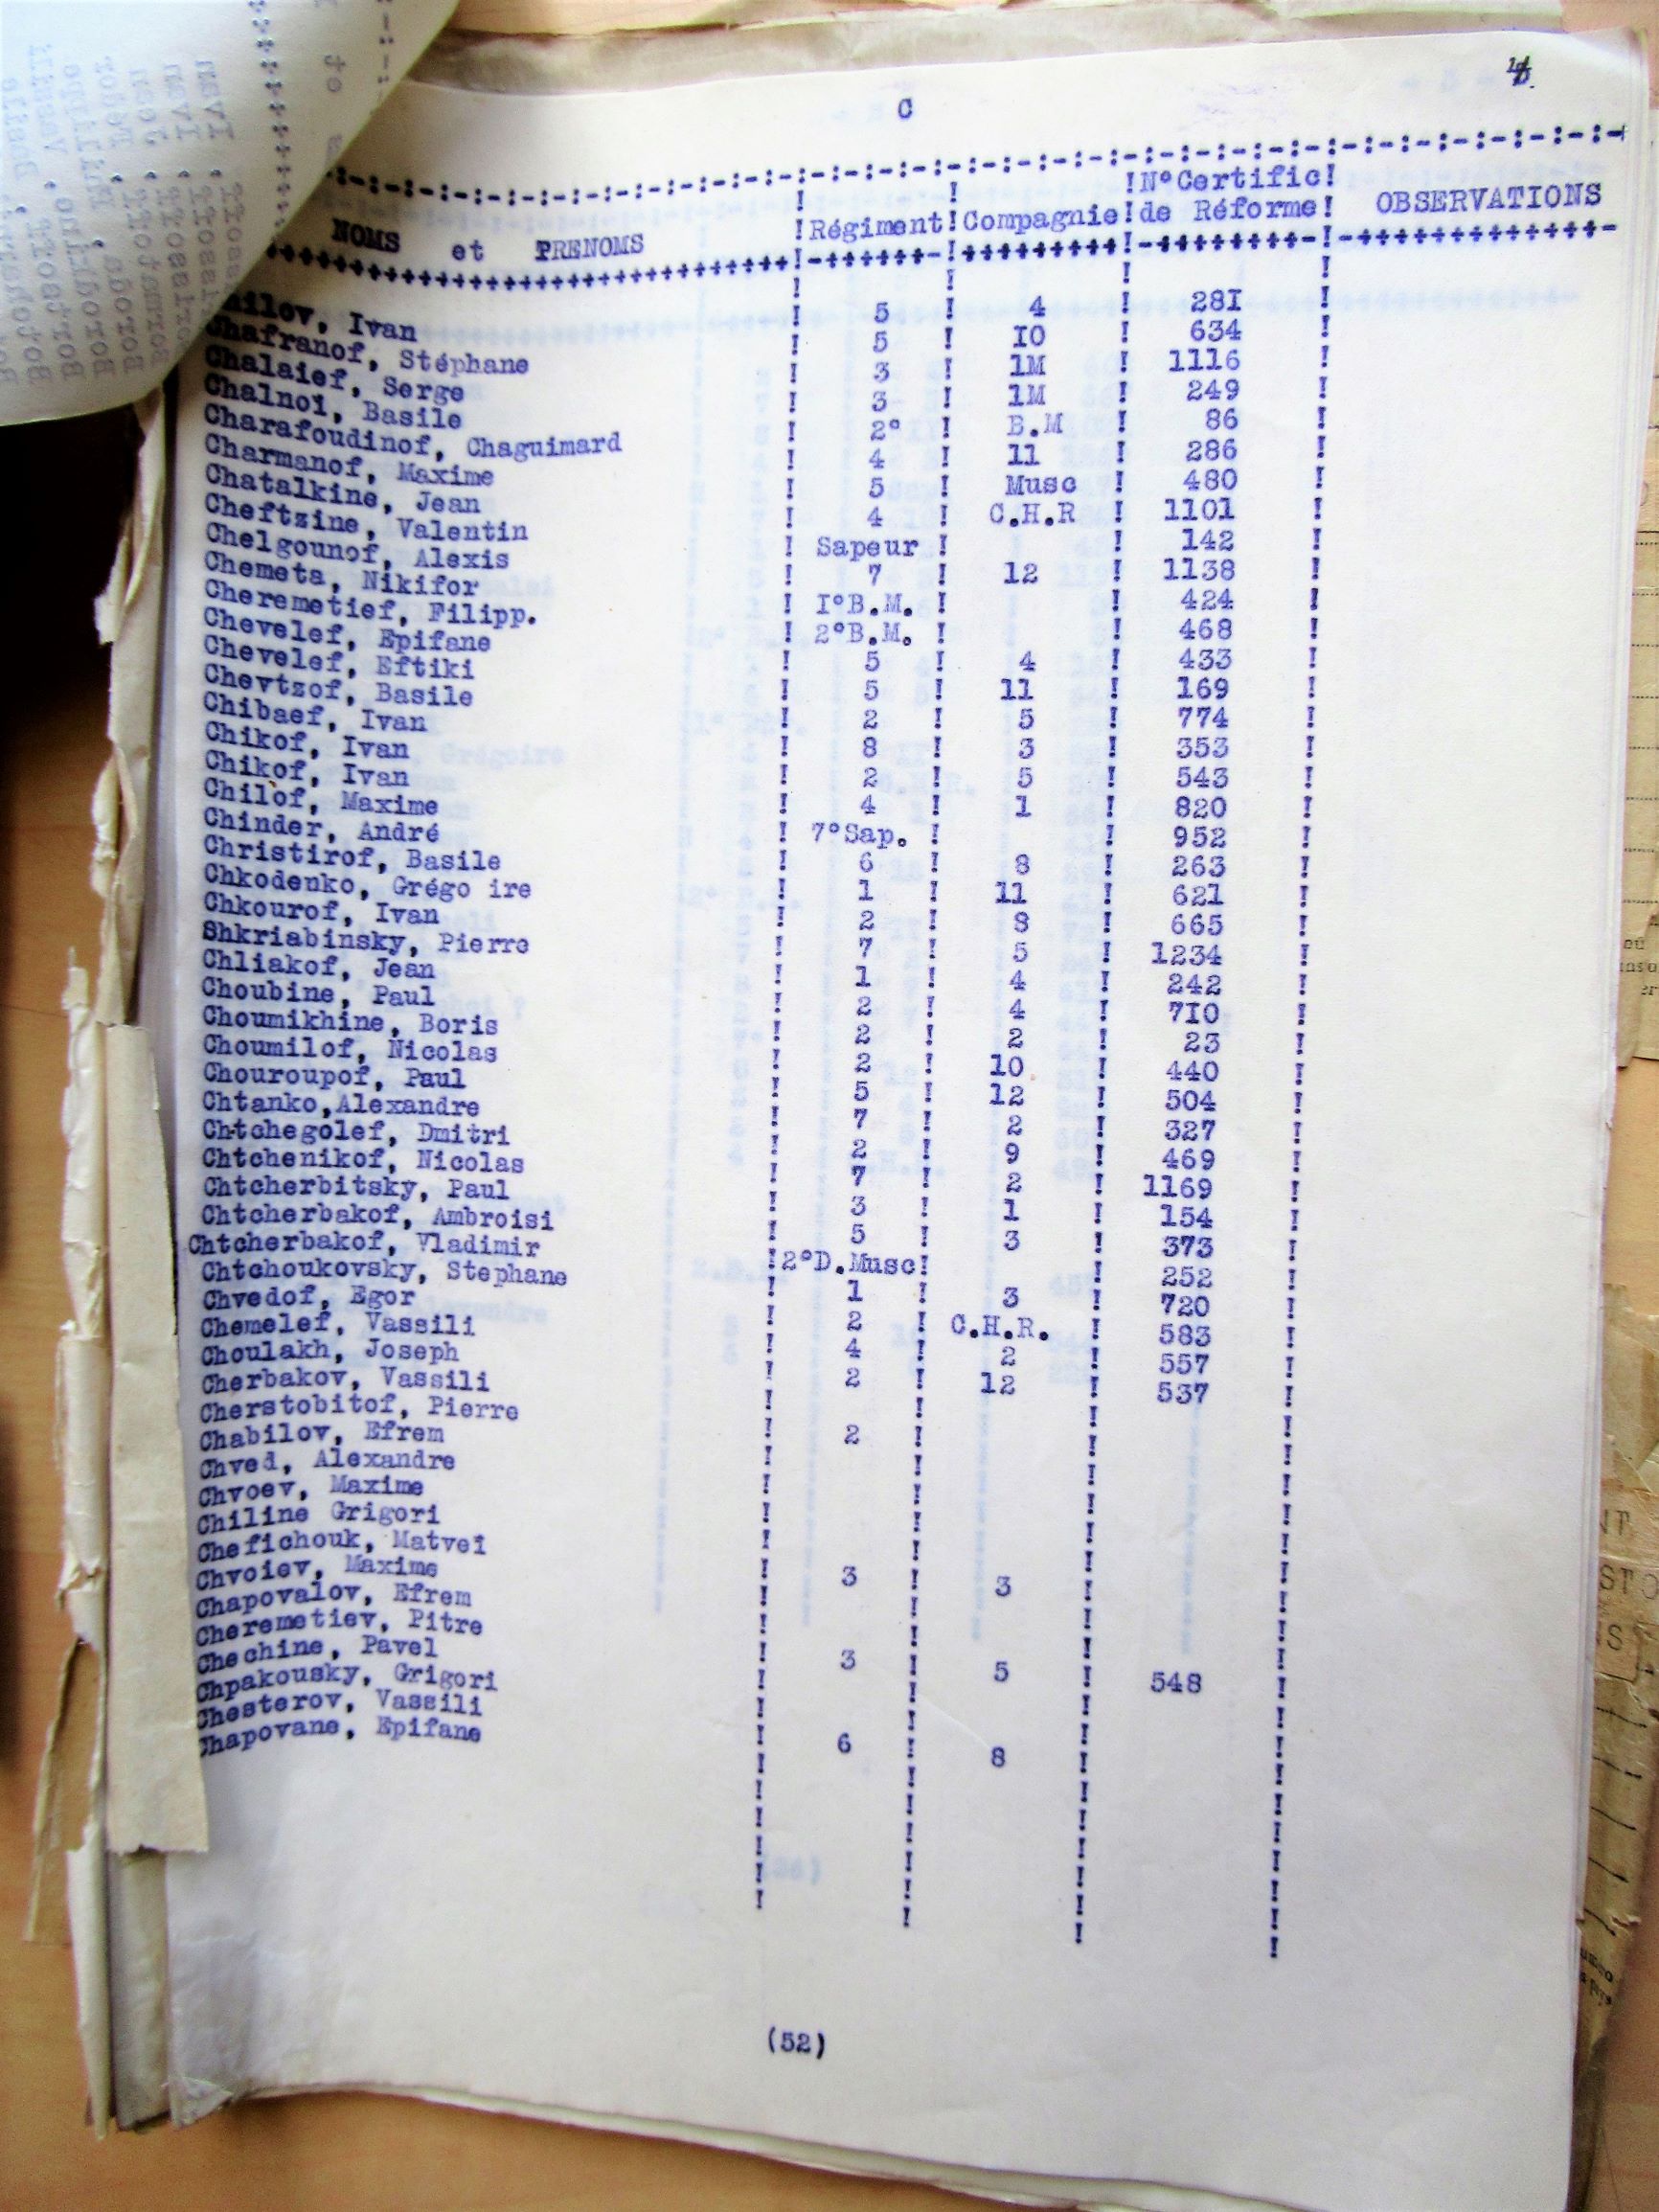 C
NOMS et PRENOMS ! Régiment ! Compagnie ! N°Certific de Réforme ! OBSERVATIONS
hilov, Ivan ! 5 ! 4 ! 28I !
Chafranof, Stéphane ! 5 ! IO ! 634 !
Chalaief, Serge ! 3 ! 1M ! 1116 !
Chalnoi, Basile ! 3 ! 1M ! 249 !
Charafoudinof, Chaguimard ! 2° ! B.M ! 86 !
Charmanof, Maxime ! 4 ! 11 ! 286 !
Chatalkine, Jean ! 5 ! Musc ! 480 !
Cheftzine, Valentin ! 4 ! C.H.R ! 1101 !
Chelgounof, Alexis ! Sapeur ! ! 142 !
Chemeta, Nikifor ! 7 ! 12 ! 1138 !
Cheremetief, Filipp. ! I°B.M. ! ! 424 !
Chevelef, Epifane ! 2°B.M. ! ! 468 !
Chevelef, Eftiki ! 5 ! 4 ! 433 !
Chevtzof, Basile ! 5 ! 11 ! 169 !
Chibaef, Ivan ! 2 ! 5 ! 774 !
Chikof, Ivan ! 8 ! 3 ! 353 !
Chikof, Ivan ! 2 ! 5 ! 543 !
Chilof, Maxime ! 4 ! 1 ! 820 !
Chinder, André ! 7°Sap. ! ! 952 !
Christirof, Basile ! 6 ! 8 ! 263 !
Chkodenko, Grégo ire ! 1 ! 11 ! 621 !
Chkourof, Ivan ! 2 ! 8 ! 665 !
Shkriabinsky, Pierre ! 7 ! 5 ! 1234 !
Chliakof, Jean ! 1 ! 4 ! 242 !
Choubine, Paul ! 2 ! 4 ! 7IO !
Choumikhine, Boris ! 2 ! 2 ! 23 !
Choumilof, Nicolas ! 2 ! 10 ! 440 !
Chouroupof, Paul ! 5 ! 12 ! 504 !
Chtanko,Alexandre ! 7 ! 2 ! 327 !
Chtchegolef, Dmitri ! 2 ! 9 ! 469 !
Chtchenikof, Nicolas ! 7 ! 2 ! 1169 !
Chtcherbitsky, Paul ! 3 ! 1 ! 154 !
Chtcherbakof, Ambroisi ! 5 ! 3 ! 373 !
Chtcherbakof, Vladimir ! 2°D.Musc ! ! 252 !
Chtchoukovsky, Stephane ! 1 ! 3 ! 720 !
Chvedof, Egor ! 2 ! C.H.R. ! 583 !
Chemelef, Vassili ! 4 ! 2 ! 557 !
Choulakh, Joseph ! 2 ! 12 ! 537 !
Cherbakov, Vassili ! ! ! !
Cherstobitof, Pierre ! 2 ! ! !
Chabilov, Efrem ! ! ! !
Chved, Alexandre ! ! ! !
Chvoev, Maxime ! ! ! !
Chiline Grigori ! ! ! !
Chefichouk, Matvei ! 3 ! 3 ! !
Chvoiev, Maxime ! ! ! !
Chapovalov, Efrem ! ! ! !
Cheremetiev, Pitre ! 3 ! 5 ! 548 !
Chechine, Pavel ! ! ! !
Chpakousky, Grigori ! ! ! !
Chesterov, Vassili ! 6 ! 8 ! !
Chapovane, Epifane ! ! ! !
(52)